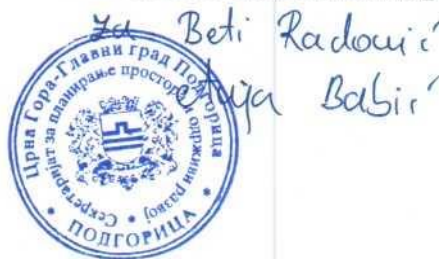 za Beti Radović
Anja Babić
Црна Гора-Главни град Подгорица
Секретаријат за планирање простора и одрживи развој
• ПОДГОРИЦА •